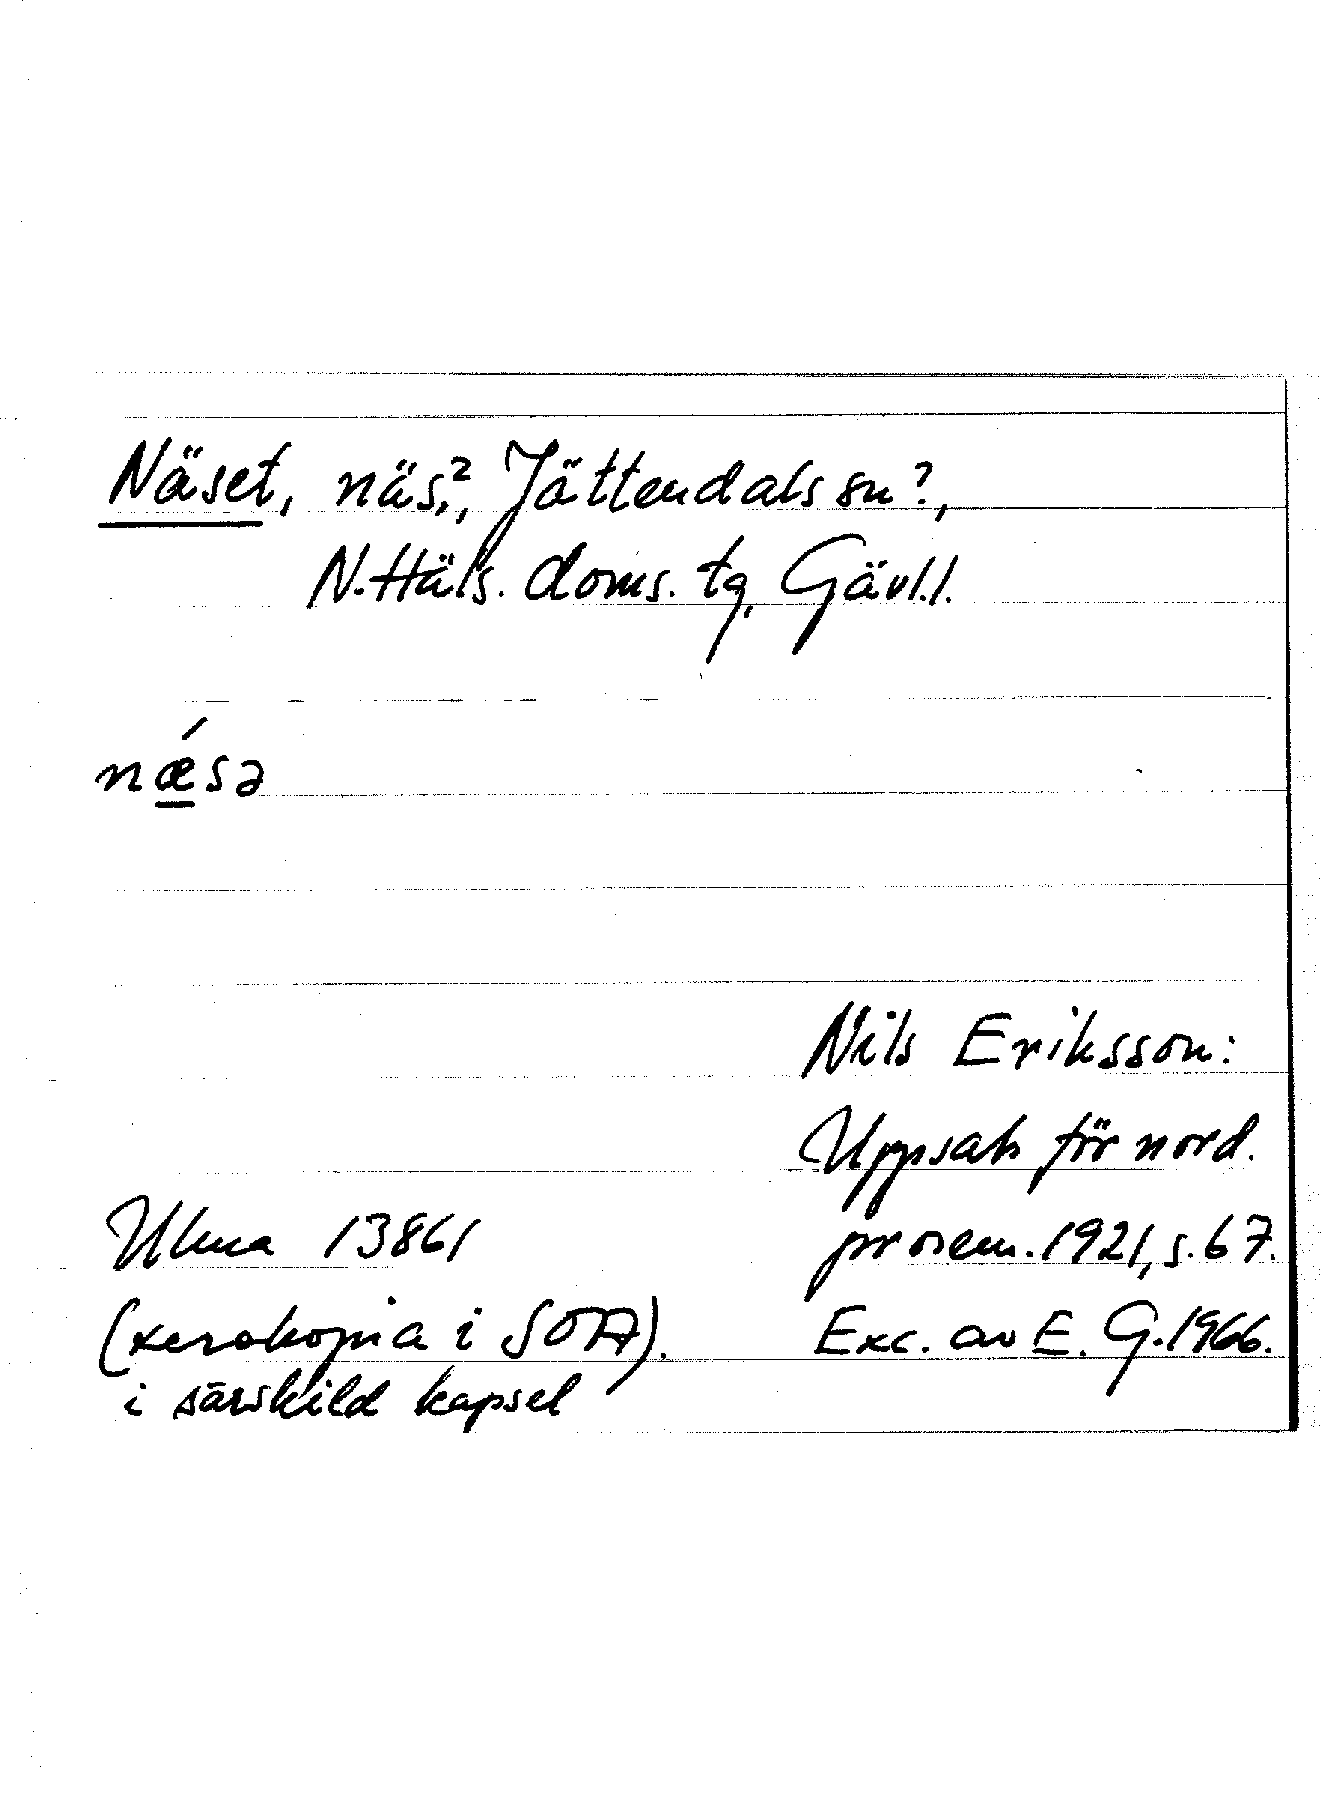 Näset, näs?, Jättendals sn?,
N. Häls. doms. tg, Gävl.l.
nǽsə
Nils Eriksson:
Uppsats för nord.
prosem. 1921, s. 67.
Ulma 13861
(xerokopia i SOA).
i särskild kapsel
Exc. av E. G. 1966.